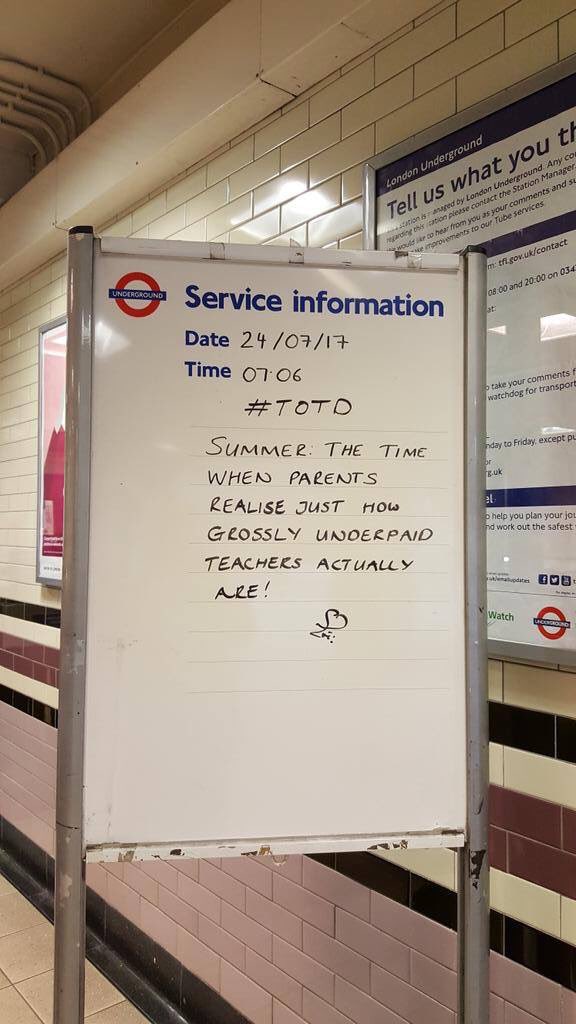 UNDERGROUND
Service information
Date 24/07/17
Time 07:06
#TOTD
SUMMER: THE TIME
WHEN PARENTS
REALISE JUST HOW
GROSSLY UNDERPAID
TEACHERS ACTUALLY
ARE!
London Underground
Tell us what you th
station is managed by London Underground. Any co
regarding this station please contact the Station Manager
would like to hear from you as your comments and su
make improvements to our Tube services.
m: tfl.gov.uk/contact
08:00 and 20:00 on 034
at:
o take your comments f
watchdog for transport
nday to Friday, except pu
or
rg.uk
el
o help you plan your jou
nd work out the safest
uk/emailupdates
Watch
UNDERGROUND